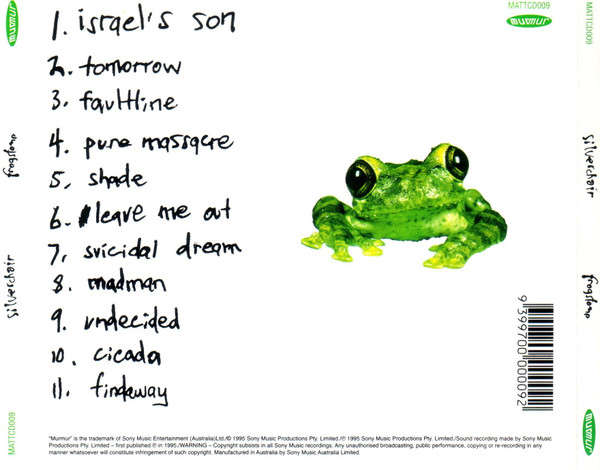 murmur
MATTCD009
silverchair
frogstomp
murmur
MATTCD009
1. israel's son
2. tomorrow
3. faultline
4. pure massacre
5. shade
6. leave me out
7. suicidal dream
8. madman
9. undecided
10. cicada
11. findaway
silverchair
frogstomp
MATTCD009
murmur
9 399700 000092
MATTCD009
silverchair
frogstomp
murmur
"Murmur" is the trademark of Sony Music Entertainment (Australia)Ltd./© 1995 Sony Music Productions Pty. Limited./℗ 1995 Sony Music Productions Pty. Limited./Sound recording made by Sony Music
Productions Pty. Limited – first published ℗ in 1995./WARNING – Copyright subsists in all Sony Music recordings. Any unauthorised broadcasting, public performance, copying or re-recording in any
manner whatsoever will constitute infringement of such copyright. Manufactured in Australia by Sony Music Australia Limited.